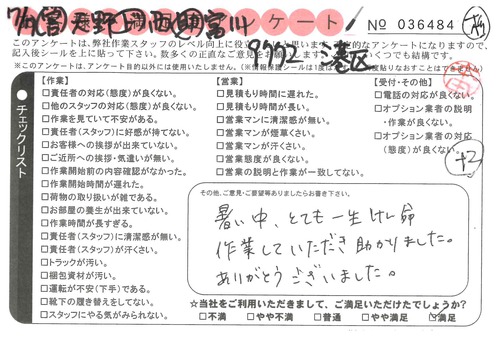 アンケート
№ 036484
港区
このアンケートは、弊社作業スタッフのレベル向上に役立
なアンケートになりますので、
記入後シールを上に貼って下さい。
くつでも結構です。
※このアンケートは、アンケート目的以外には使用いたしません。
【作業】
□責任者の対応(態度)が良くない。
□他のスタッフの対応(態度)が良くない。
□作業を見ていて不安がある。
□責任者(スタッフ)に好感が持てない。
□お客様への挨拶が出来ていない。
□ご近所への挨拶・気遣いが無い。
□作業開始前の内容確認がなかった。
□作業開始時間が遅れた。
□荷物の取り扱いが雑である。
□お部屋の養生が出来ていない。
□作業時間が長すぎる。
□責任者(スタッフ)に清潔感が無い。
□責任者(スタッフ)が汗くさい。
□トラックが汚い。
□梱包資材が汚い。
□運転が不安(下手)である。
□靴下の履き替えをしてない。
□スタッフにやる気がみられない。
【営業】
□見積もり時間に遅れた。
□見積もり時間が長い。
□営業マンに清潔感が無い。
□営業マンが煙草くさい。
□営業マンが汗くさい。
□営業態度が良くない。
□営業の説明と作業が一致してない。
【受付・その他】
□電話の対応が良くない。
□オプション業者の説明
・作業が良くない。
□オプション業者の対応
(態度)が良くない。
チェックリスト
その他、ご意見・ご要望等ありましたらお書き下さい。
暑い中、とても一生けん命
作業していただき助かりました。
ありがとうございました。
☆当社をご利用いただきまして、ご満足いただけたでしょうか?
□不満 □やや不満 □普通 □やや満足 ☑満足